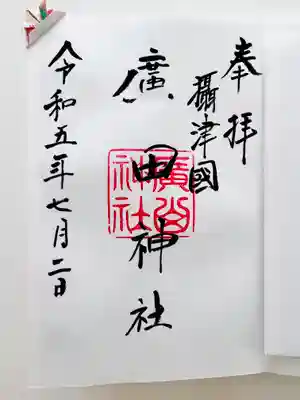 奉拝
攝津國
廣田神社
廣田神社
令和五年七月二日